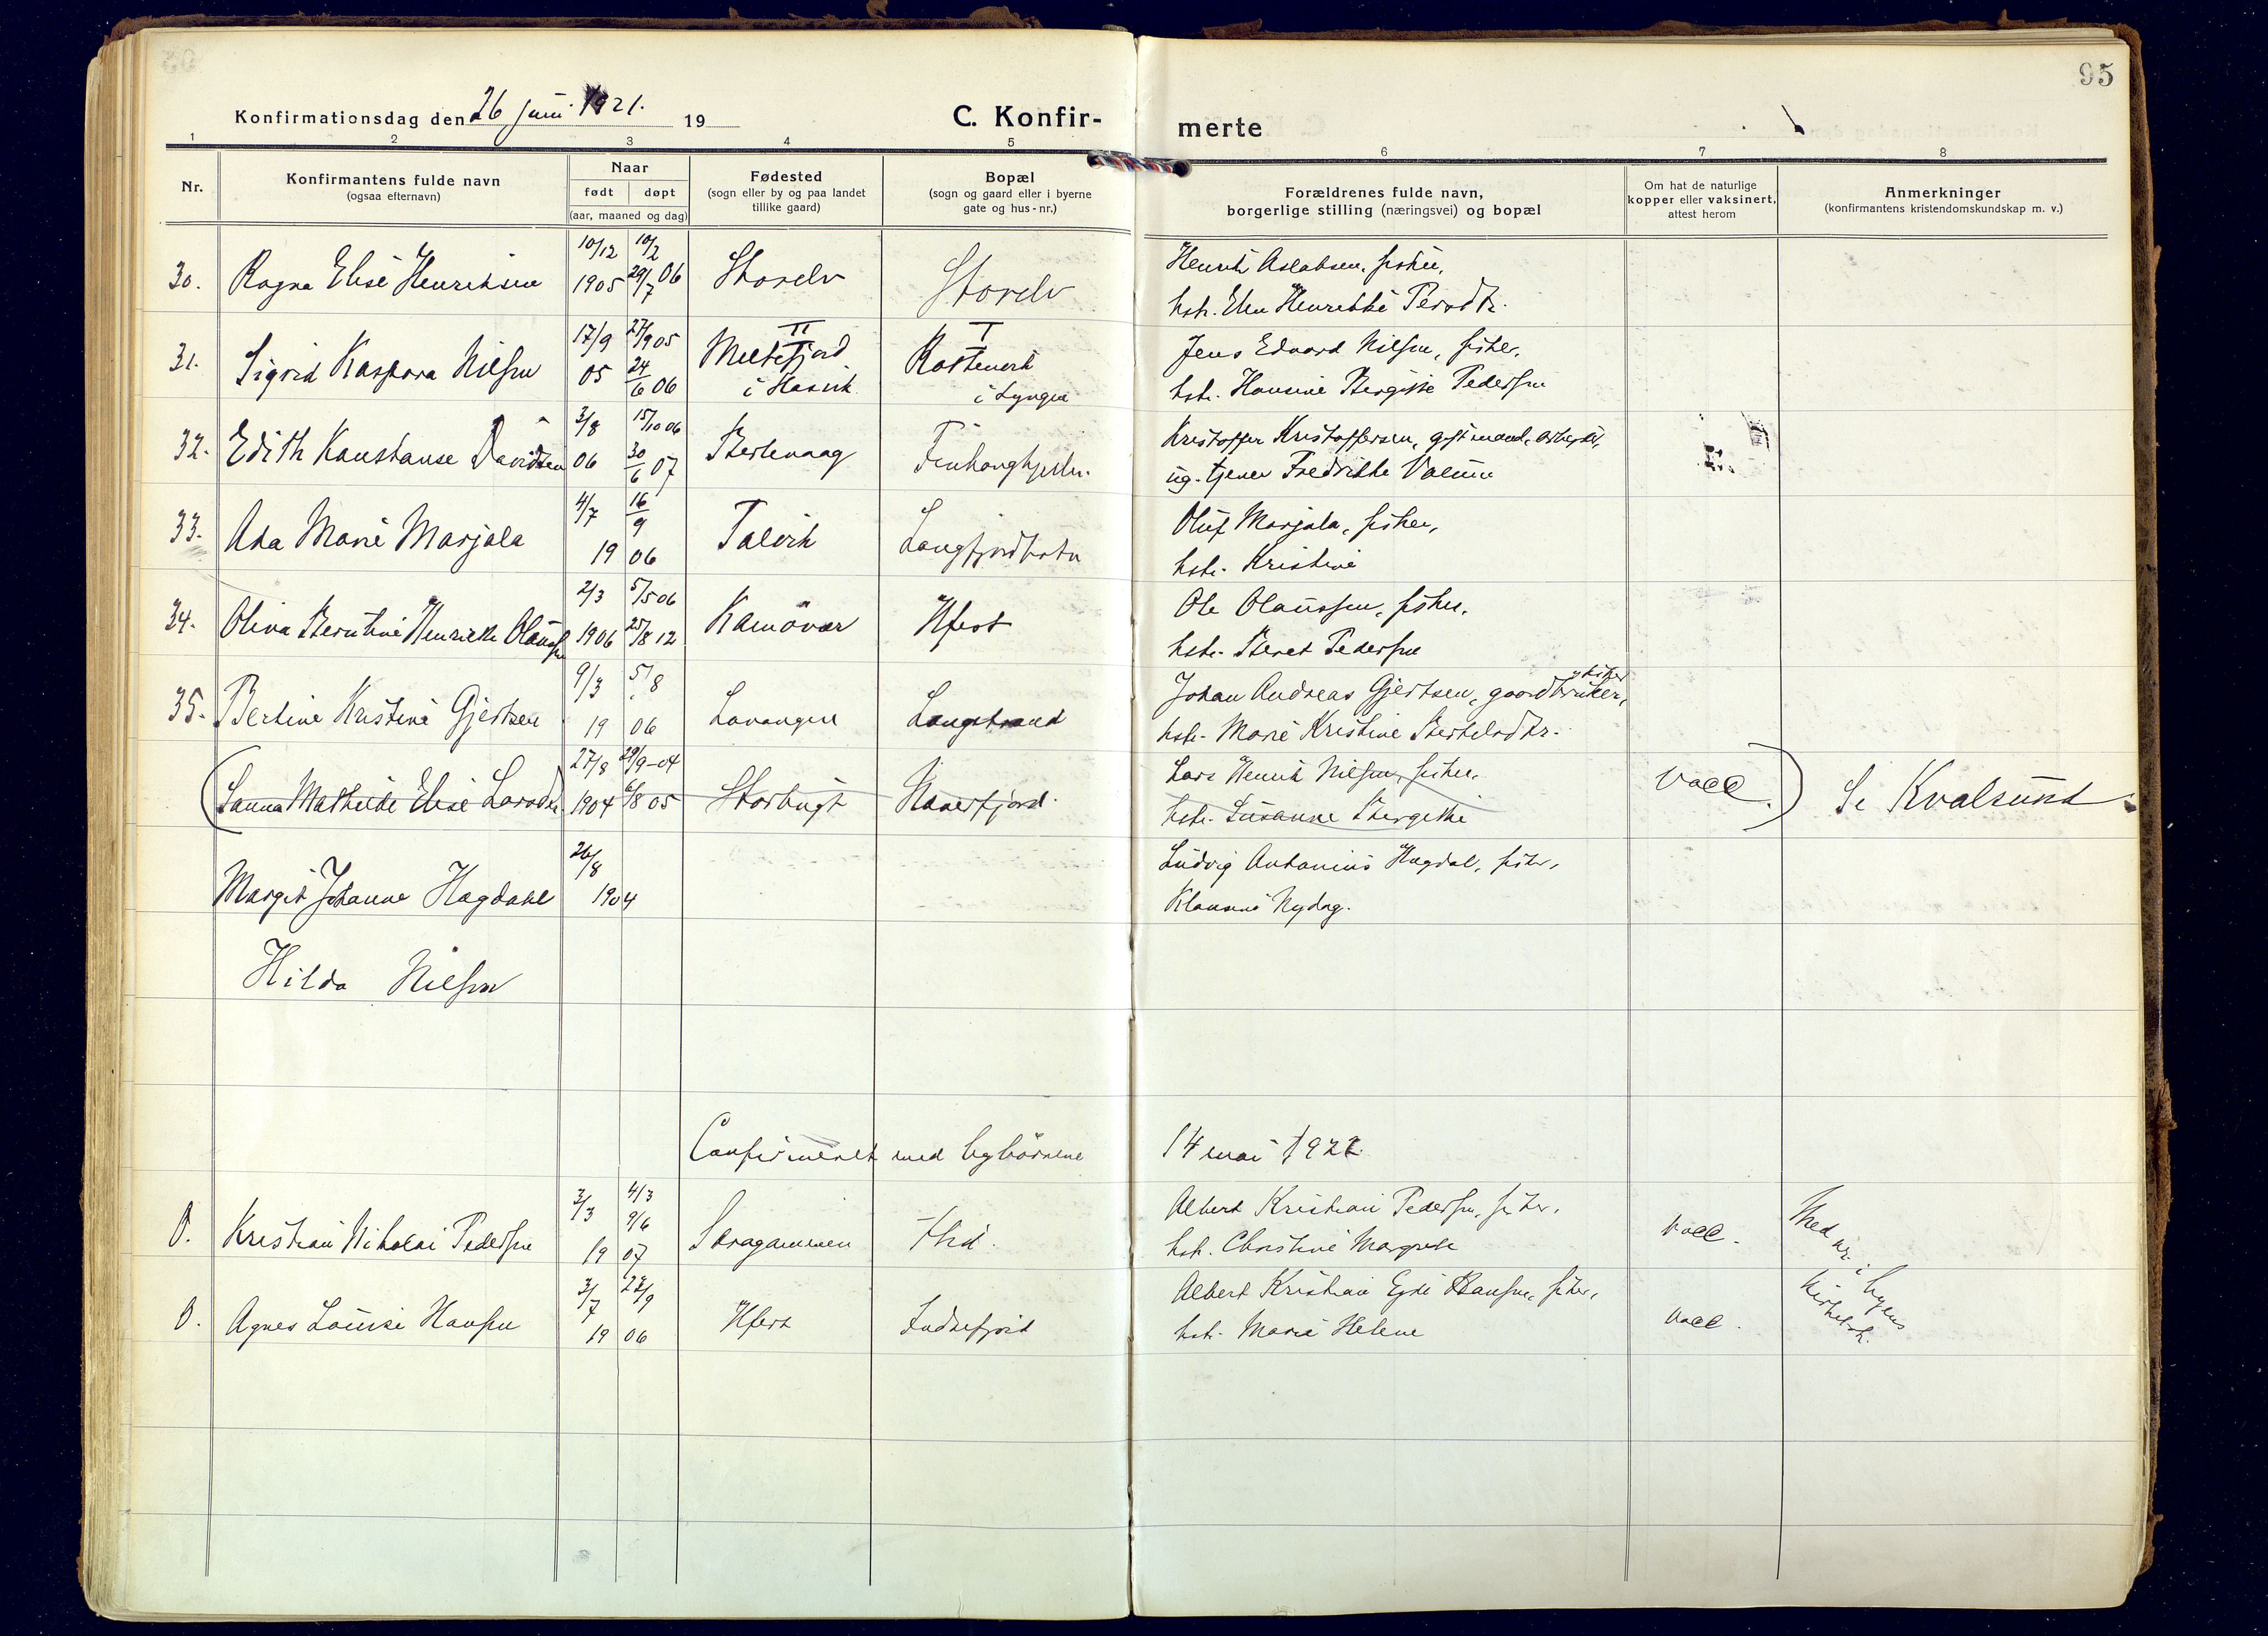 95
Konfirmationsdag den 26 juni 1921. 19
C. Konfir-
merte
1 2 3 4 5 6 7 8
Nr.
Konfirmantens fulde navn
(ogsaa efternavn)
Naar
født døpt
(aar, maaned og dag)
Fødested
(sogn eller by og paa landet
tillike gaard)
Bopæl
(sogn og gaard eller i byerne
gate og hus-nr.)
Forældrenes fulde navn,
borgerlige stilling (næringsvei) og bopæl
Om hat de naturlige
kopper eller vaksinert,
attest herom
Anmerkninger
(konfirmantens kristendomskundskap m. v.)
10/12 10/2 Henrik Aslaksen, fisker,
30. Ragna Elise Henriksen 1905 29/7 06 Storelv Storelv
hstr. Elen Henrikke Persdtr.
17/9 27/9 05 II I Jens Edvard Nilsen, fisker,
31. Sigrid Kaspara Nilsen 05 24/6 06 Meltefjord i Hasvik i Lyngen
hstr. Hansine Bergitte Pedersen
3/8 15/10 06 Kristoffer Kristoffersen, gift mand, arbeider,
32. Edith Konstanse Davidsen 06 30/6 07 Berlevaag
ug. tjener Fredrikke
4/7 16/9 Oluf Marjala, fisker,
33. Marie Marjala 19 06 Talvik Langfjordbotn
hstr. Kristine
2/3 5/5 06 Ole Olaussen, fisker,
34. Oliva Berntine Henrikke Olaussen 1906 25/8 12 Kamøvær Hfest
hstr. Beret Pedersen
9/3 5/8 Johan Andreas Gjertsen, gaardbruker, fisker
35. Bertine Kristine Gjertsen 19 06 Lavangen Langstrand
hstr. Marie Kristine Bertelsdtr.
27/8 29/9-04 Lars Henrik Nilsen, fisker, Vacc.
(Sanna Mathilde Elise Larsdtr 1904 6/8 05 Storbugt Naverfjord. ) Se Kvalsund
hstr. Susanne Bergithe
26/8 Ludvig Antonius Hagdal, fisker,
Margit Johanne Hagdahl 1904
Nydag.
Hilda Nilsen
Confirmeret med bybørnene 14 mai 1922
3/3 4/3 9/6 Albert Kristian Pedersen, fisker,
0. Kristian Nikolai Pedersen 19 07 vacc.
hstr. Christine Margrete
Med nr. i byens kirkebok.
3/7 22/9 Albert Kristian Hansen, fisker,
0. Agnes Louise Hansen 19 06 Hfest vacc.
hstr. Marie Helene